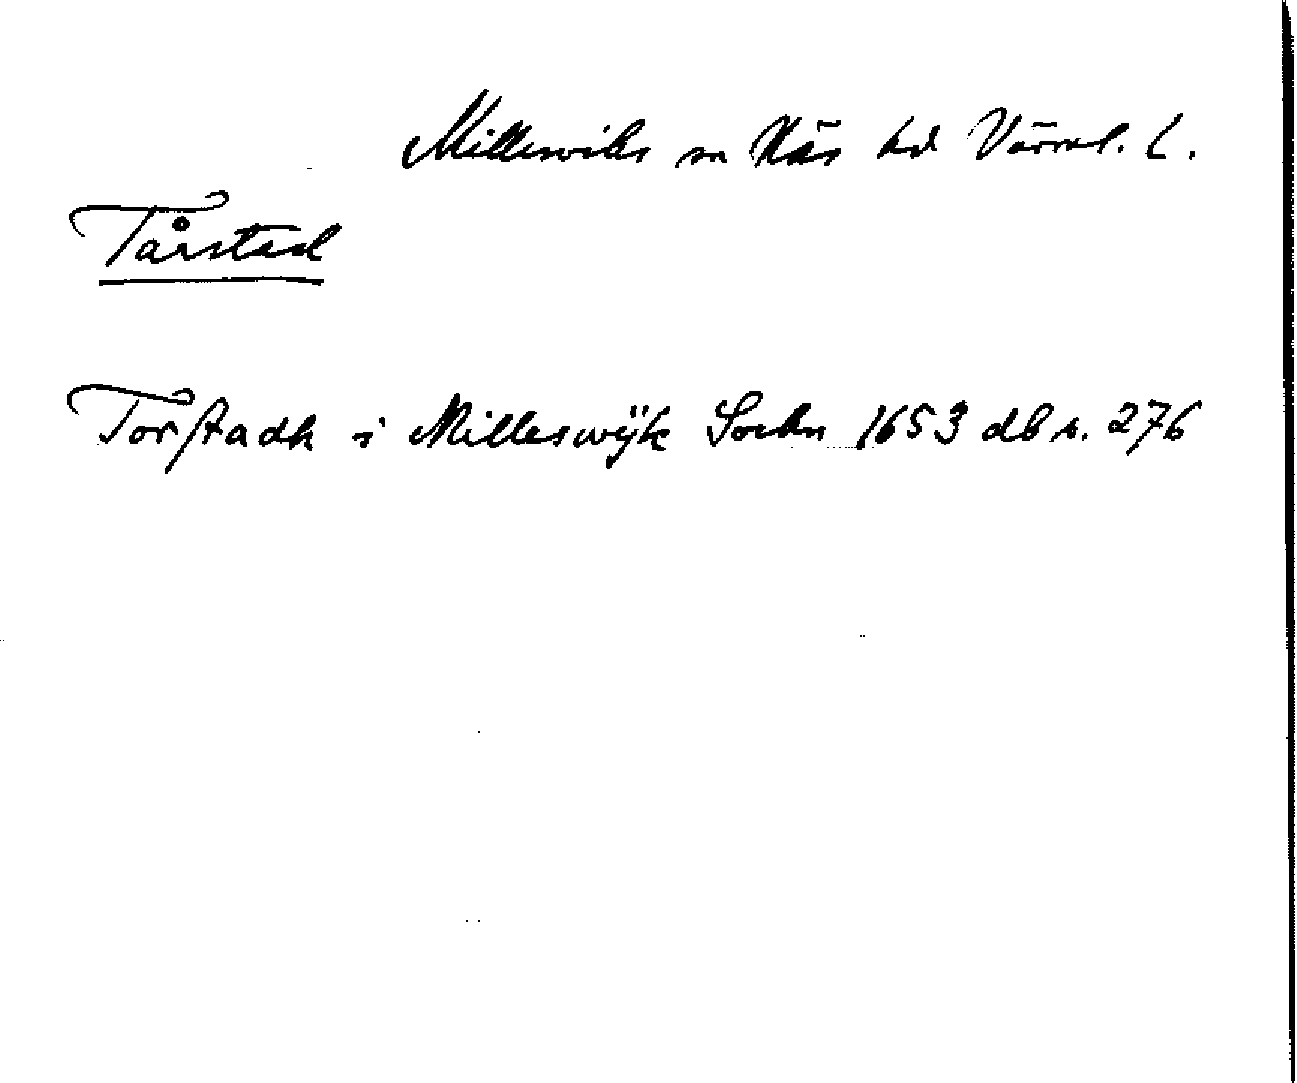 Millesviks sn Näs hd Värml. L.
Tårstad
Torstadh i Milleswijk Sochn 1653 db s. 276